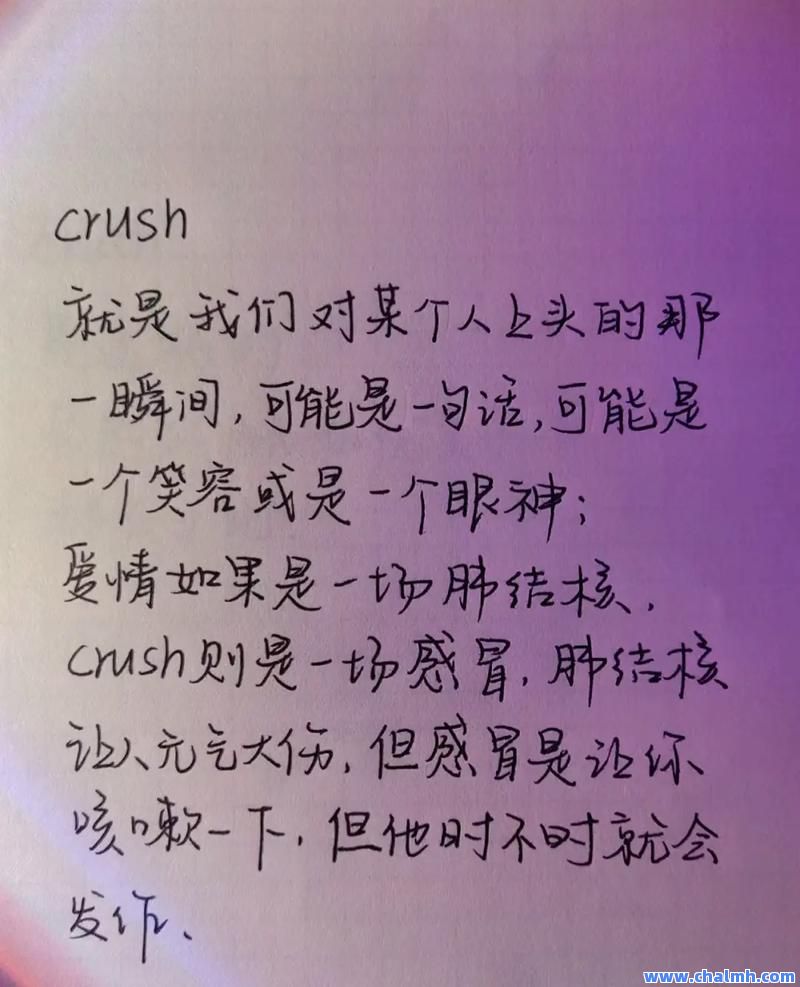 crush
就是我们对某个人上头的那
一瞬间,可能是一句话,可能是
一个笑容或是一个眼神;
爱情如果是一场肺结核,
crush则是一场感冒,肺结核
让人元气大伤,但感冒是让你
咳嗽一下,但他时不时就会
发作、
www.chalmh.com